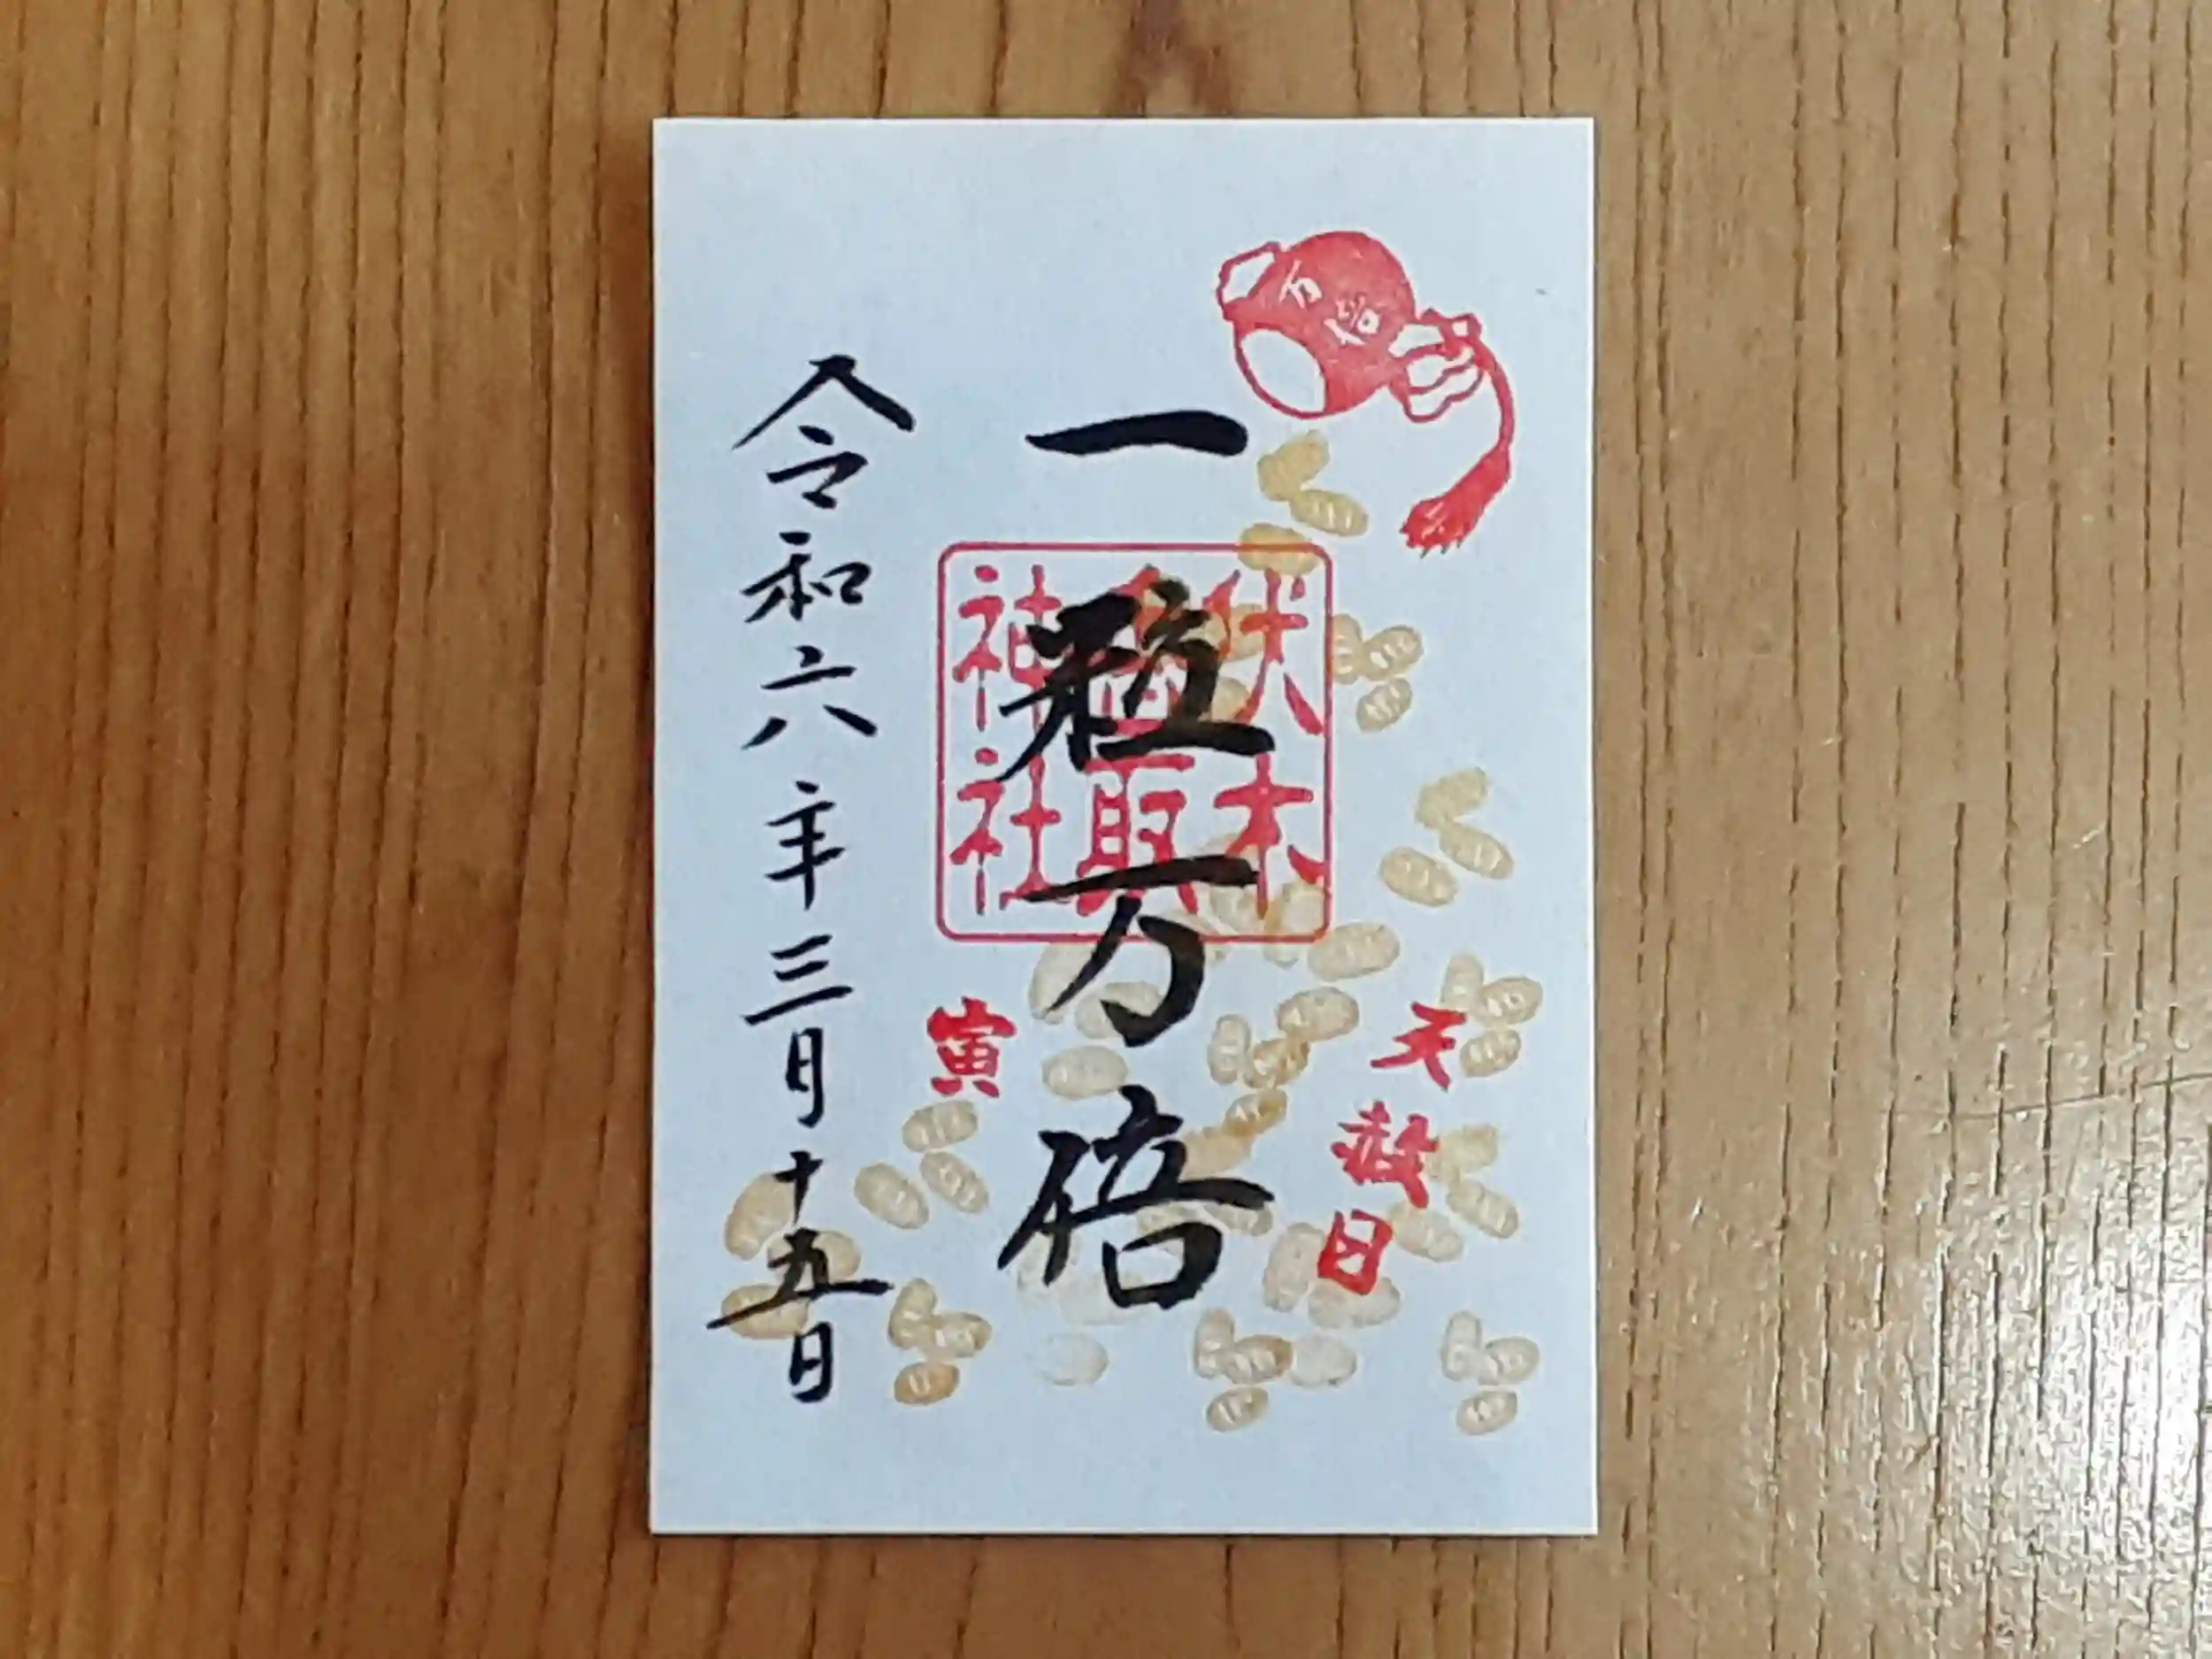 万倍
天赦日
一粒万倍
伏木
香取
神社
寅
令和六年三月十五日